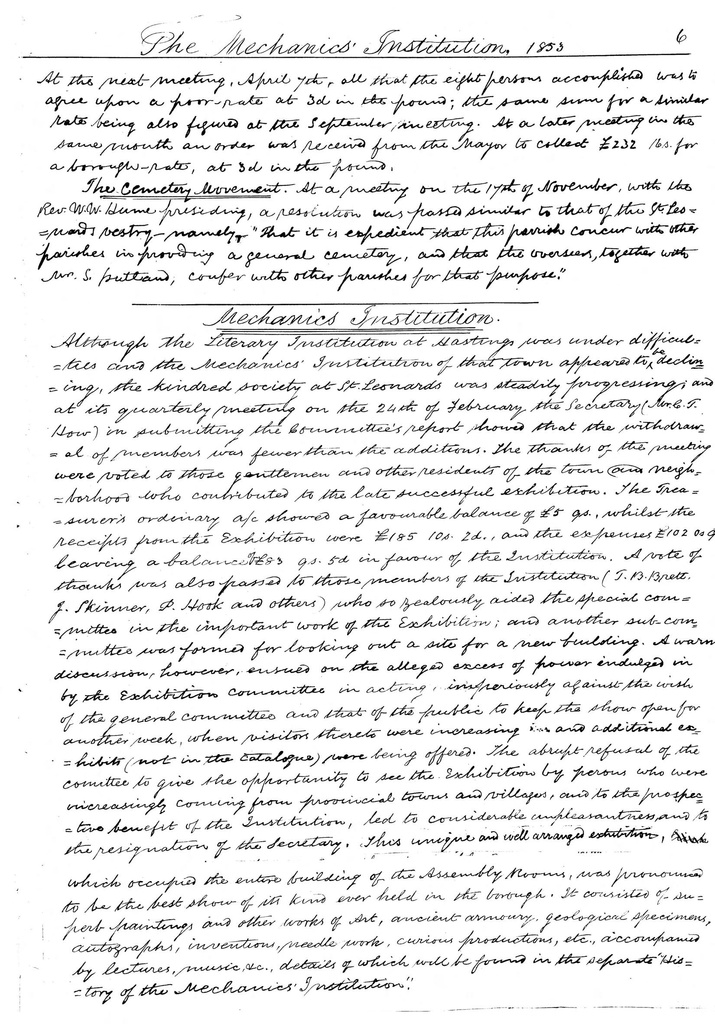 The Mechanics' Institution, 1853 6
At the next meeting, April 7th, all that the eight persons accomplished was to
agree upon a poor-rate at 3d in the pound; the same sum for a similar
rate being also figured at the September meeting. At a later meeting in the
same month an order was received from the Mayor to collect £232 16s. for
a borough-rate, at 3d in the pound.
The Cemetery Movement. At a meeting on the 17th of November, with the
Rev. W.W. Hume presiding, a resolution was passed similar to that of the St. Leo-
=nards vestry - namely, "That it is expedient that this parish concur with other
parishes in providing a general cemetery, and that the overseers, together with
Mr. S. Putland, confer with other parishes for that purpose."
Mechanics Institution.
Although the Literary Institution at Hastings was under difficul-
=ties and the Mechanics' Institution of that town appeared to be declin
=ing, the kindred society at St. Leonards was steadily progressing; and
at its quarterly meeting on the 24th of February the Secretary (Mr. C. T.
How) in submitting the Committee's report showed that the withdraw-
=al of members was fewer than the additions. The thanks of the meeting
were voted to those gentlemen and other residents of the town and neigh-
=borhood who contributed to the late successful exhibition. The Trea-
=surer's ordinary a/c showed a favourable balance of £5 9s., whilst the
receipts from the Exhibition were £185 10s. 2d., and the expenses £102 0s 9
leaving a balance of £83 9s. 5d in favour of the Institution. A vote of
thanks was also passed to those members of the Institution (T. B. Brett.
J. Skinner, P. Hook and others) who so zealously aided the special com-
=mittee in the important work of the Exhibition; and another sub-com-
=mittee was formed for looking out a site for a new building. A warm
discussion, however, ensued on the alleged excess of power indulged in
by the Exhibition committee in acting, imperiously against the wish
of the general committee and that of the public to keep the show open for
another week, when visitor thereto were increasing and additional ex-
=hibits (not in the catalogue) were being offered. The abrupt refusal of the
comittee to give the opportunity to see the Exhibition by persons who were
increasingly coming from provincial towns and villages, and to the prospec-
=tive benefit of the Institution, led to considerable unpleasantness, and to
the resignation of the Secretary. This unique and well arranged exhibition,
which occupied the entire building of the Assembly Rooms, was pronounced
to be the best show of its kind ever held in the borough. It consisted of su-
perb paintings and other works of Art, ancient armoury, geological specimens,
autographs, inventions, needle work, curious productions, etc., accompanied
by lectures, music, &c., details of which will be found in the separate "His-
=tory of the Mechanics' Institution".